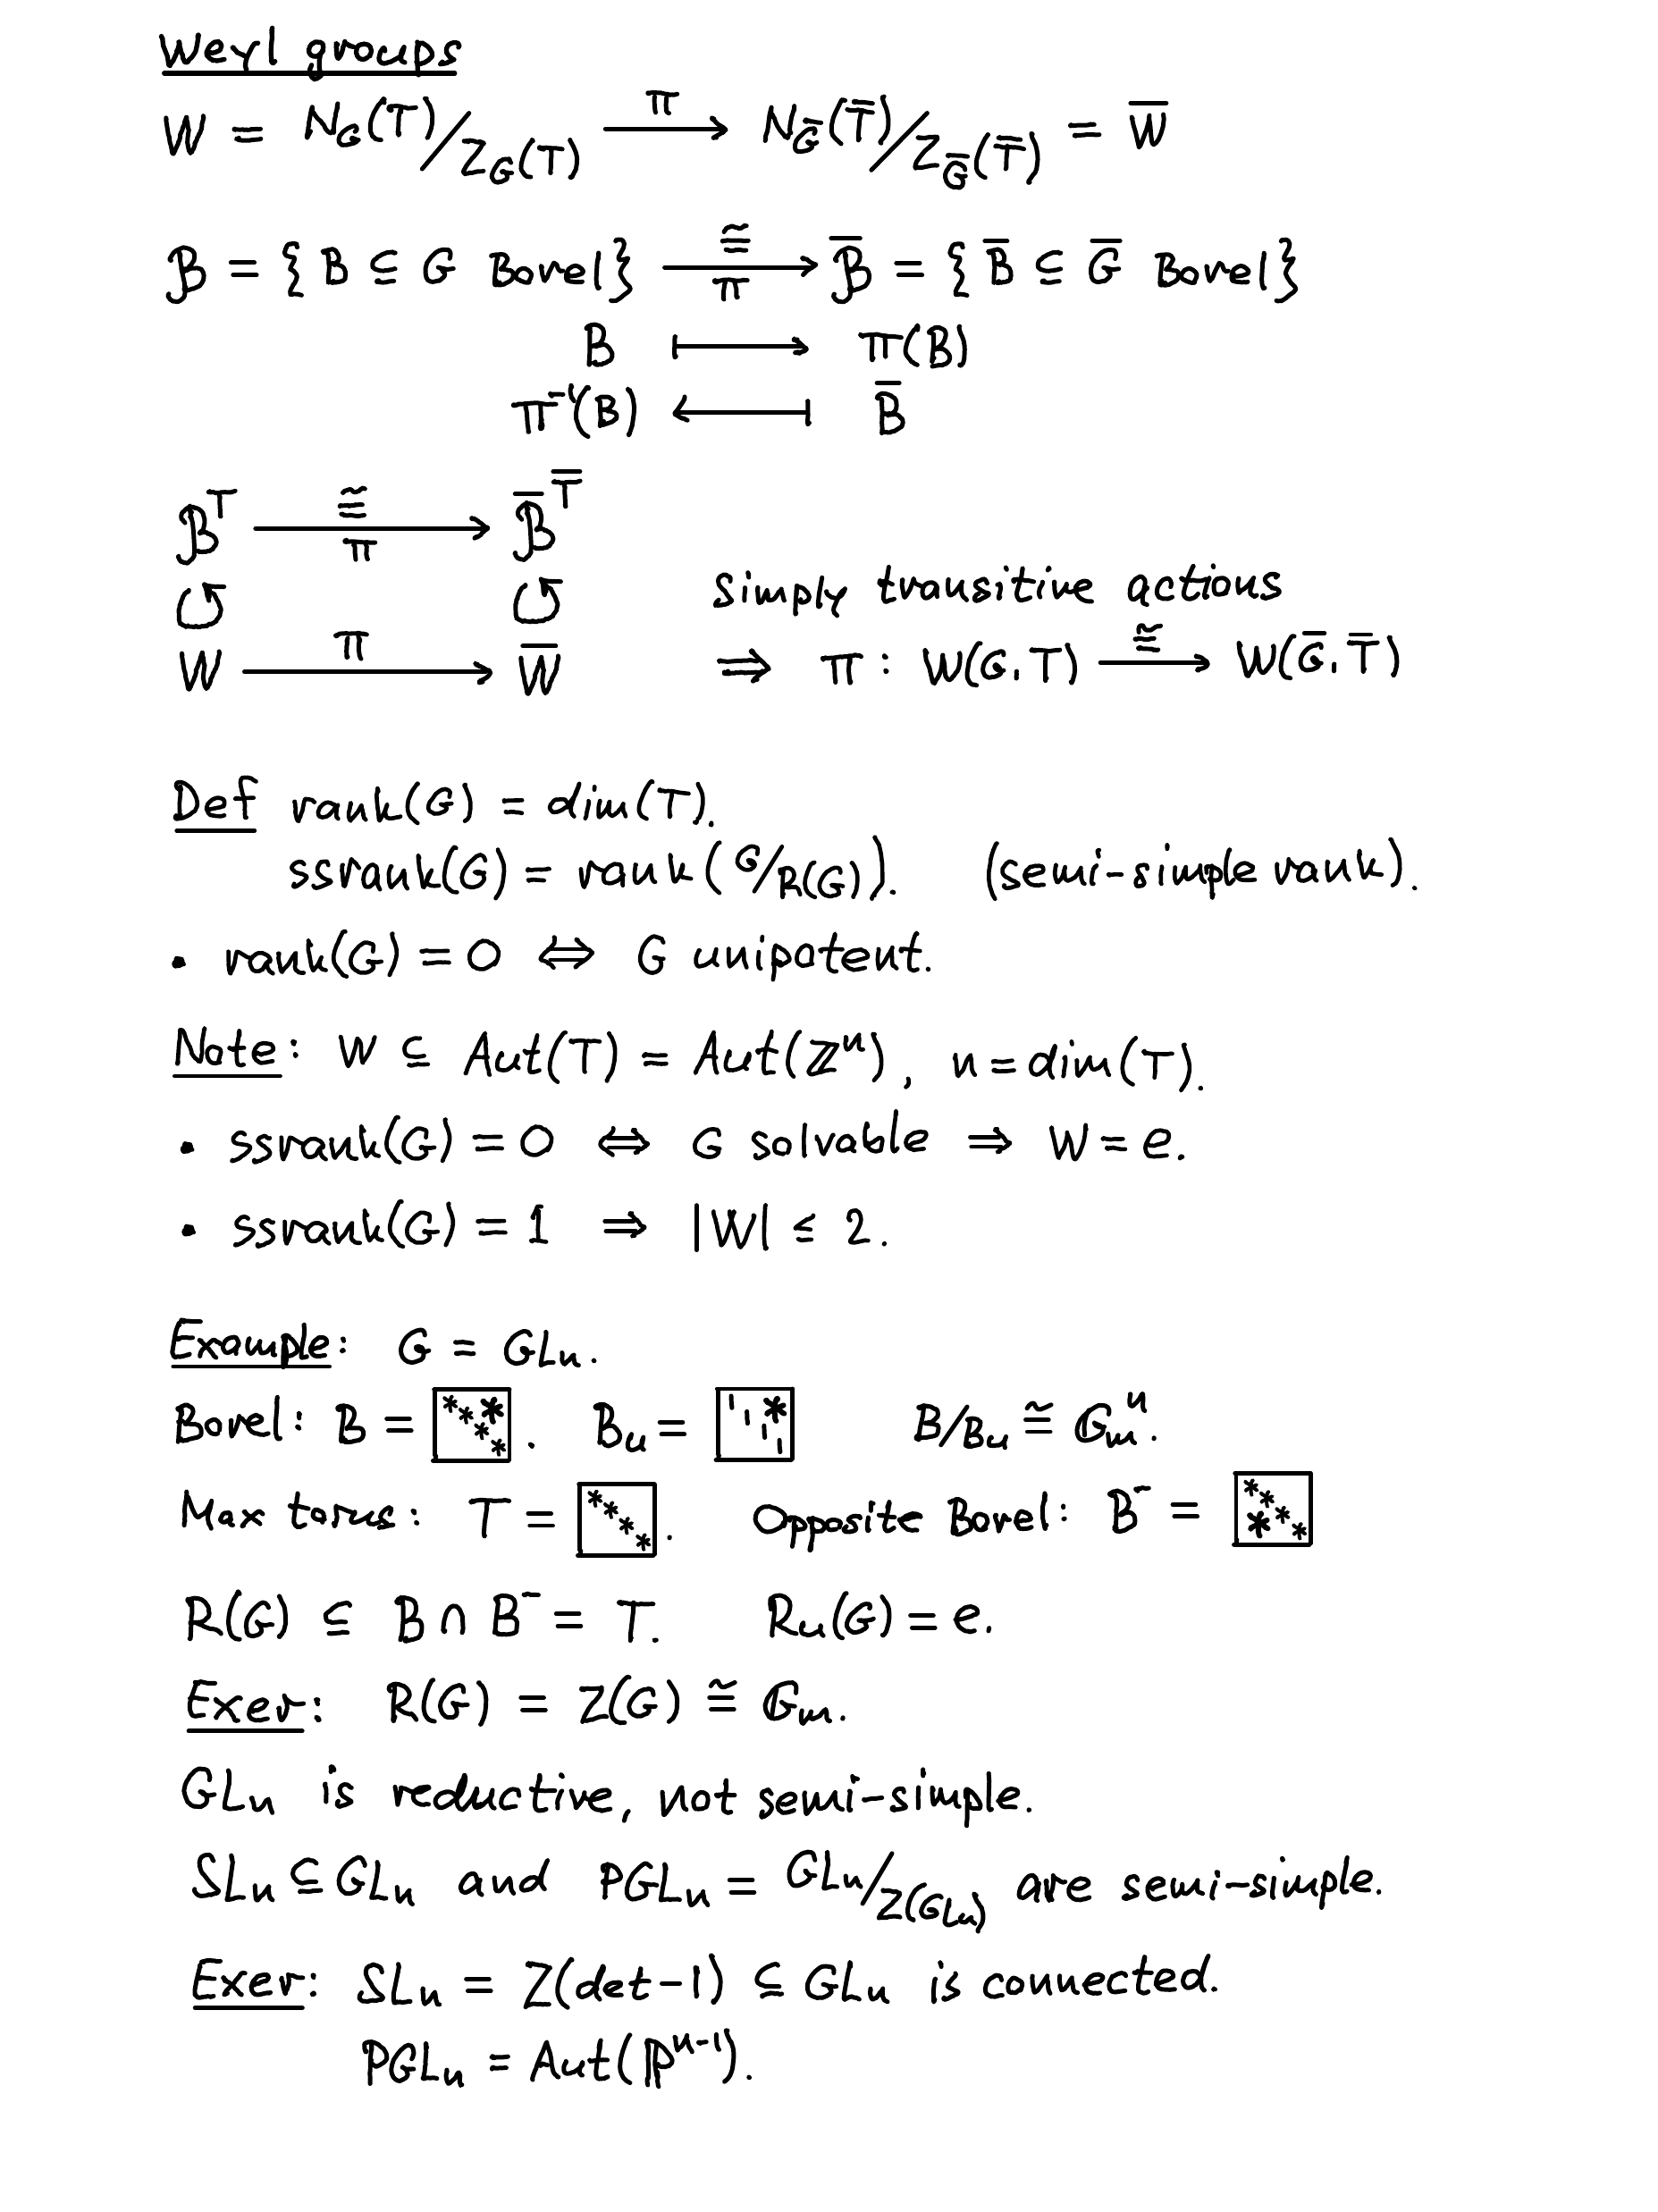 Weyl groups
W = N_G(T)/Z_G(T) →^π N_G̅(T̅)/Z_G̅(T̅) = W̅
ℬ = { B ⊆ G Borel} ≅→π ℬ̅ = { B̅ ⊆ G̅ Borel}
B ⟼ π(B)
π⁻¹(B) ⟻ B̅
ℬ^T ≅→π ℬ̅^T̅
↺ ↺ Simply transitive actions
W →^π W̅ ⇒ π : W(G,T) ≅→ W(G̅,T̅)
Def rank(G) = dim(T).
ssrank(G) = rank(G/R(G)). (semi-simple rank).
• rank(G) = 0 ⇔ G unipotent.
Note: W ⊆ Aut(T) = Aut(ℤⁿ), n = dim(T).
• ssrank(G) = 0 ⇔ G solvable ⇒ W = e.
• ssrank(G) = 1 ⇒ |W| ≤ 2.
Example: G = GLₙ.
Borel: B = [* * * * *]. Bᵤ = [1 1 1 1 *] B/Bᵤ ≅ 𝔾ₘⁿ.
Max torus: T = [* * * *]. Opposite Borel: B⁻ = [* * * * *]
R(G) ⊆ B ∩ B⁻ = T. Rᵤ(G) = e.
Exer: R(G) = Z(G) ≅ 𝔾ₘ.
GLₙ is reductive, not semi-simple.
SLₙ ⊆ GLₙ and PGLₙ = GLₙ/Z(GLₙ) are semi-simple.
Exer: SLₙ = Z(det-1) ⊆ GLₙ is connected.
PGLₙ = Aut(ℙⁿ⁻¹).